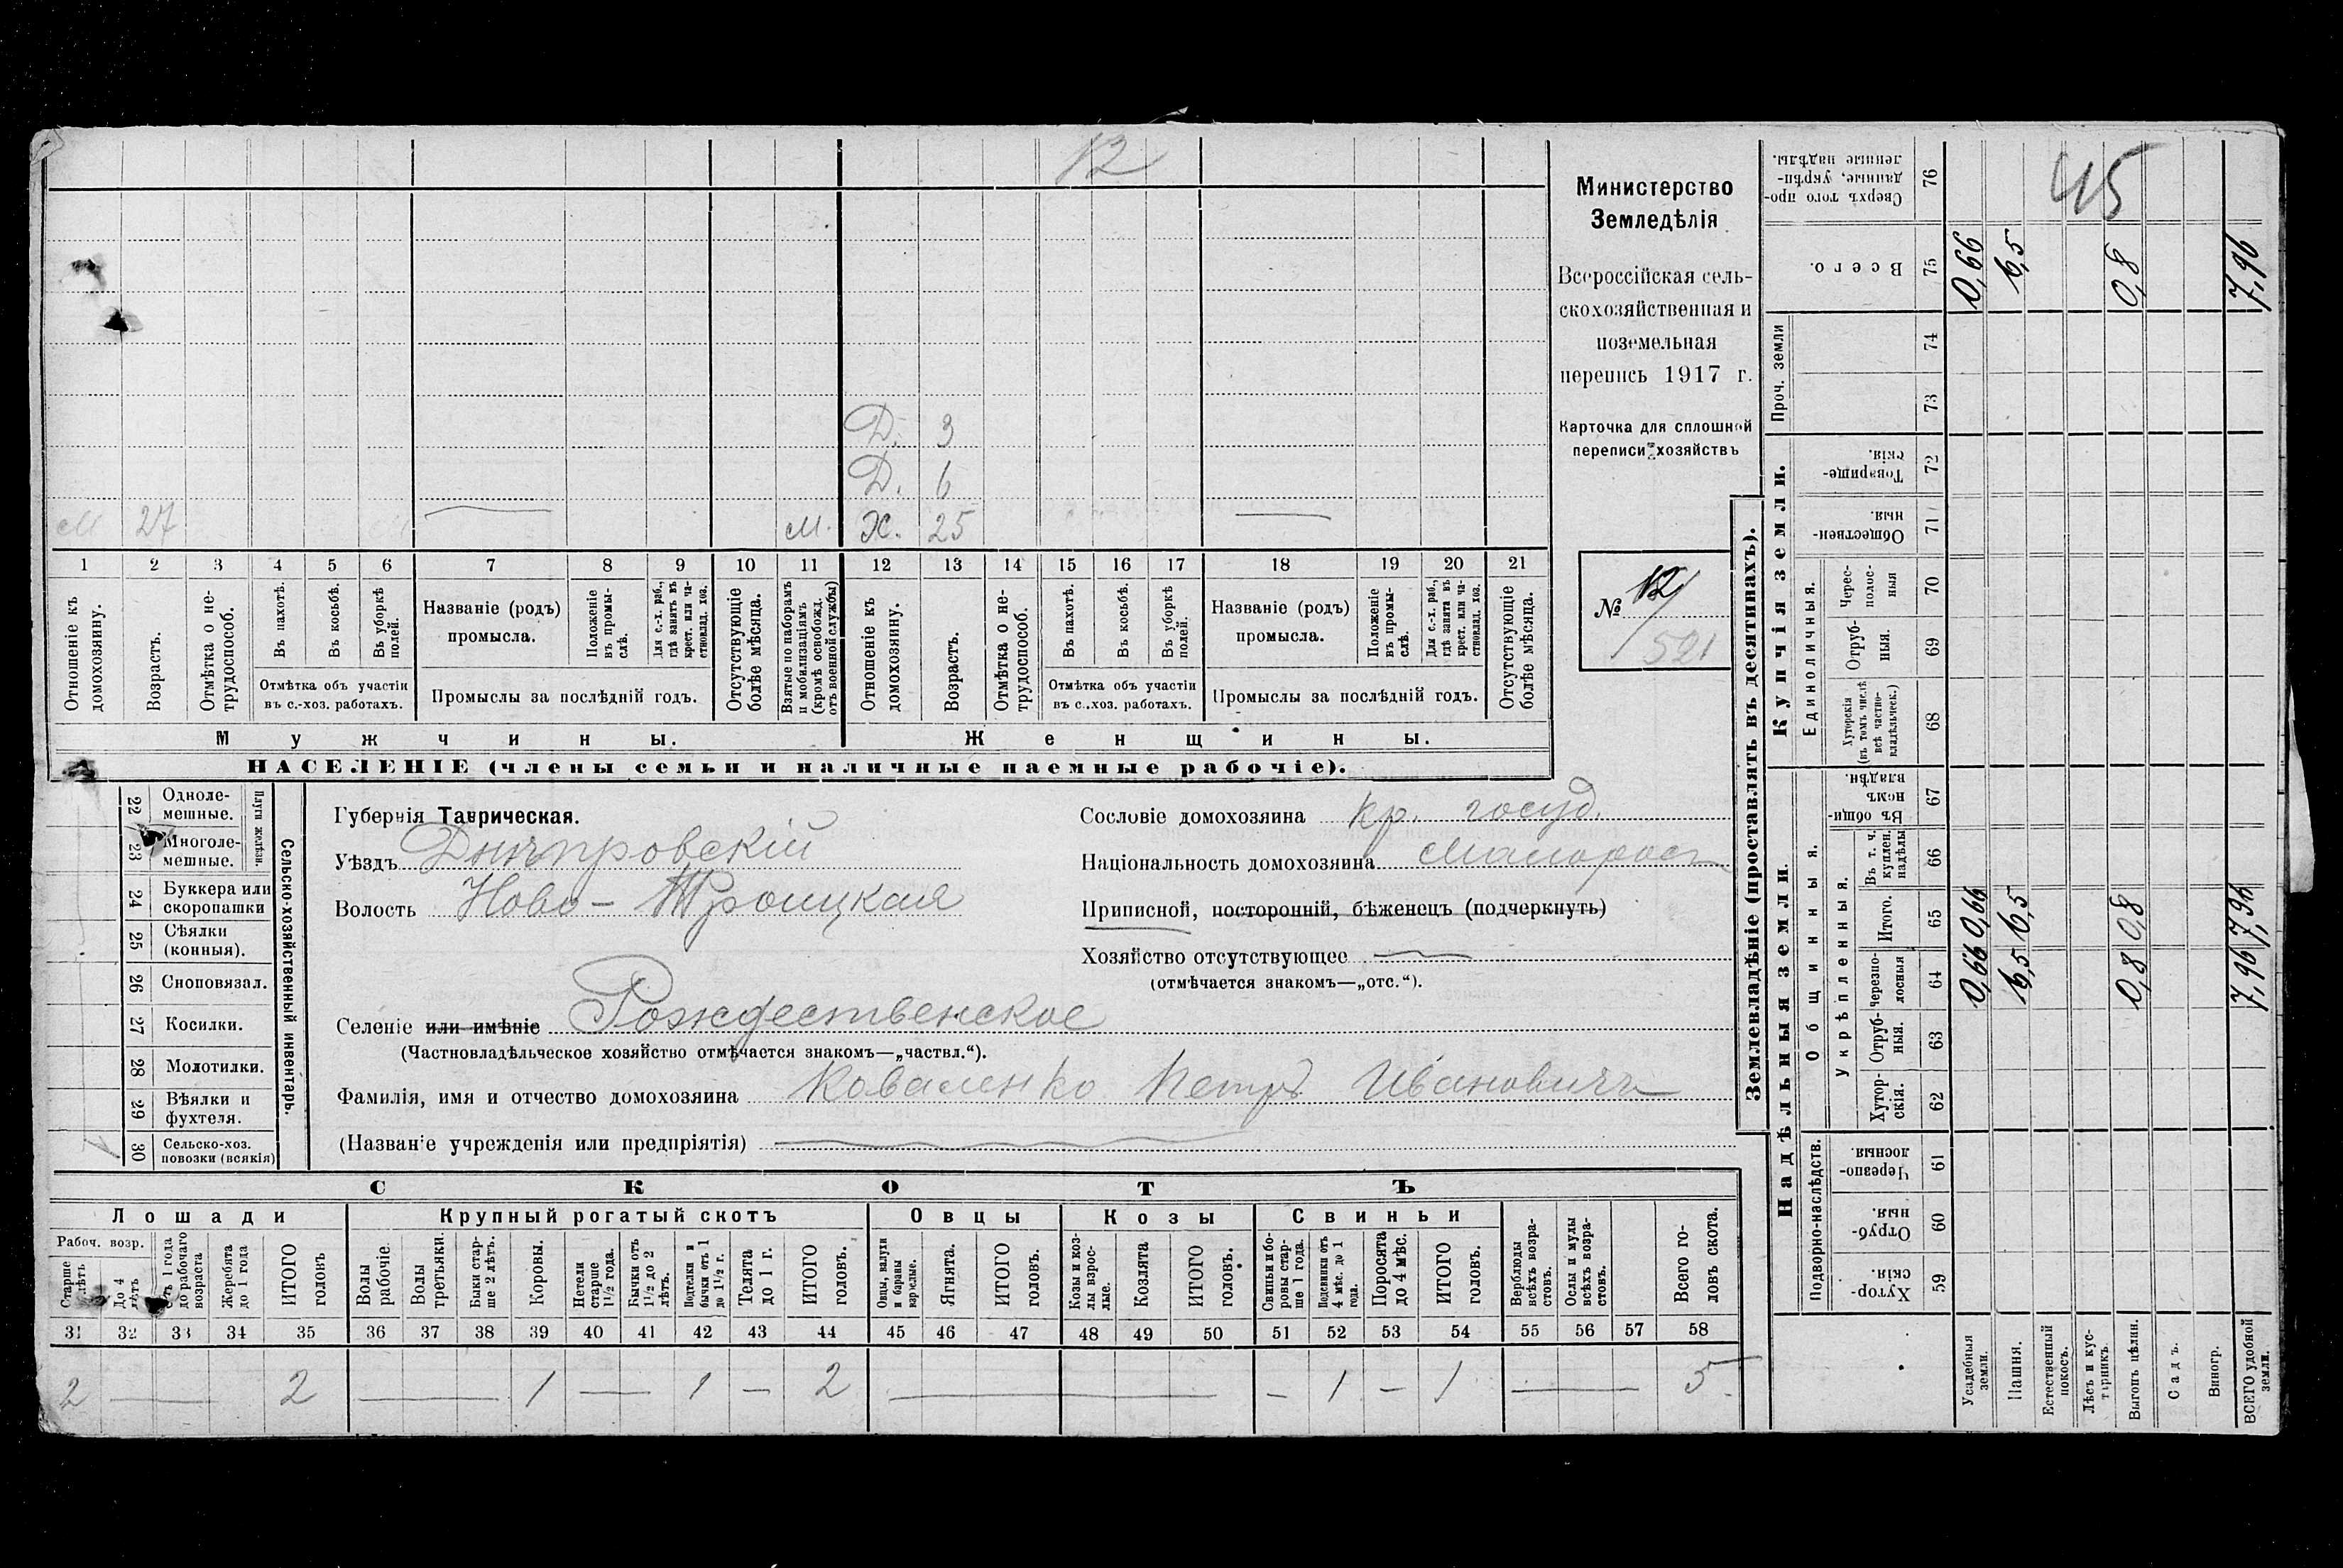 12
Д. 3
Д. 6
М 27 м. Ж. 25
1 2 3 4 5 6 7 8 9 10 11 12 13 14 15 16 17 18 19 20 21
Отношеніе къ домохозяину.
Возрастъ.
Отмѣтка о не-
трудоспособ.
Въ пахотѣ.
Въ косьбѣ.
Въ уборкѣ
полей.
Отмѣтка объ участіи
въ с.-хоз. работахъ.
Названіе (родъ)
промысла.
Положеніе
въ промы-
слѣ.
Для с.-х. раб.,
гдѣ занятъ въ
крест. или ча-
стновлад. хоз.
Промыслы за послѣдній годъ.
Отсутствующіе
болѣе мѣсяца.
Взятые по наборамъ
и мобилизаціямъ
(кромѣ освобожд.
отъ военной службы)
Отношеніе къ
домохозяину.
Возрастъ.
Отмѣтка о не-
трудоспособ.
Въ пахотѣ.
Въ косьбѣ.
Въ уборкѣ
полей.
Отмѣтка объ участіи
въ с.-хоз. работахъ.
Названіе (родъ)
промысла.
Положеніе
въ промы-
слѣ.
Для с.-х. раб.,
гдѣ занята въ
крест. или ча-
стновлад. хоз.
Промыслы за послѣдній годъ.
Отсутствующіе
болѣе мѣсяца.
Мужчины. Женщины.
НАСЕЛЕНІЕ (члены семьи и наличные наемные рабочіе).
Министерство
Земледѣлія
Всероссійская сель-
скохозяйственная и
поземельная
перепись 1917 г.
Карточка для сплошной
переписи хозяйствъ
№ 12
521
22 Одноле-
мешные.
23 Многоле-
мешные.
Плуги желѣзн.
24 Буккера или
скоропашки
25 Сѣялки
(конныя).
26 Сноповязал.
27 Косилки.
28 Молотилки.
29 Вѣялки и
фухтеля.
30 Сельско-хоз.
повозки (всякія)
1
Сельско-хозяйственный инвентарь.
Губернія Таврическая.
Уѣздъ Днѣпровскій
Волость Ново-Троицкая
Селеніе или имѣніе Рождественское
(Частновладѣльческое хозяйство отмѣчается знакомъ—„частвл.“).
Фамилія, имя и отчество домохозяина Коваленко Петръ Ивановичъ
(Названіе учрежденія или предпріятія)
Сословіе домохозяина кр. госуд.
Національность домохозяина Малоросъ
Приписной, посторонній, бѣженецъ (подчеркнуть)
Хозяйство отсутствующее
(отмѣчается знакомъ—„отс.“).
СКОТЪ
Лошади Крупный рогатый скотъ Овцы Козы Свиньи
Рабоч. возр.
Старше
4 лѣтъ
До 4
лѣтъ
Отъ 1 года
до рабочаго
возраста
Жеребята
до 1 года
ИТОГО
головъ
Волы
рабочіе.
Волы
третьяки.
Быки стар-
ше 2 лѣтъ.
Коровы.
Нетели
старше
1½ года.
Бычки отъ
1½ до 2
лѣтъ.
Подтелки и
бычки отъ 1
до 1½ г.
Телята
до 1 г.
ИТОГО
головъ.
Овцы, валухи
и бараны
взрослые.
Ягнята.
ИТОГО
головъ.
Козы и коз-
лы взрос-
лые.
Козлята
ИТОГО
головъ.
Свиньи и бо-
ровы стар-
ше 1 года.
Подсвинки отъ
4 мѣс. до 1
года.
Поросята
до 4 мѣс.
ИТОГО
головъ.
Верблюды
всѣхъ возра-
стовъ.
Ослы и мулы
всѣхъ возра-
стовъ.
Всего го-
ловъ скота.
31 32 33 34 35 36 37 38 39 40 41 42 43 44 45 46 47 48 49 50 51 52 53 54 55 56 57 58
2 — 2 — 1 — 1 — 2 — — 1 — 1 — 5
Землевладѣніе (проставлять въ десятинахъ).
Надѣльныя земли. Купчія земли. Проч. земли
Подворно-наслѣдств.
Общинныя.
Укрѣпленныя.
Единоличныя.
Хутор-
скія. 59
Отруб-
ныя. 60
Черезпо-
лосныя 61
Хутор-
скія. 62
Отруб-
ныя. 63
Черезпо-
лосныя 64
Итого. 65
Въ т. ч.
куплен.
надѣлы 66
Въ общи-
номъ
владѣн. 67
Хуторскія
(въ томъ числѣ
всѣ частно-
владѣльческ.) 68
Отруб-
ныя. 69
Черес-
полос-
ныя 70
Обществен-
ныя 71
Товарище-
скія. 72
73
74
Всего. 75
Сверхъ того про-
данные, укрѣп-
ленные надѣлы. 76
45
Усадебныя
земли. 0,66 0,66 0,66
Пашня. 6,5 6,5 6,5
Естественный
покосъ.
Лѣсъ и кус-
тарникъ.
Выгонъ цѣлин. 0,8 0,8 0,8
Садъ.
Виногр.
ВСЕГО удобной
земли. 7,96 7,96 7,96